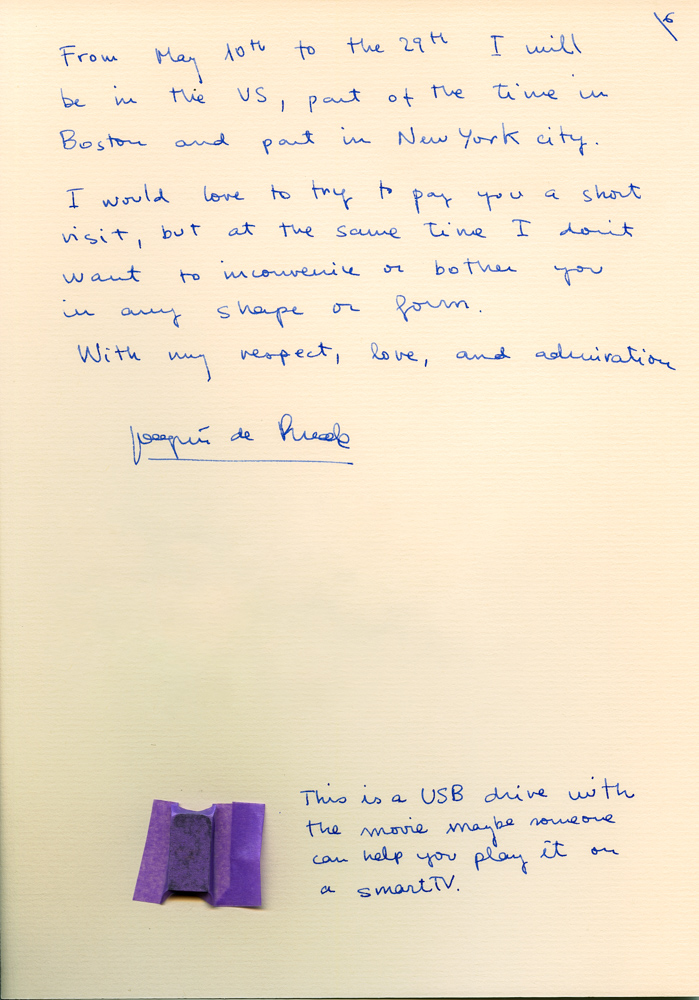 6
From May 10th to the 29th I will
be in the US, part of the time in
Boston and part in New York city.
I would love to try to pay you a short
visit, but at the same time I don't
want to inconvenice or bother you
in any shape or form.
With my respect, love, and admiration
Joaquín de
This is a USB drive with
the movie maybe someone
can help you play it on
a smartTV.